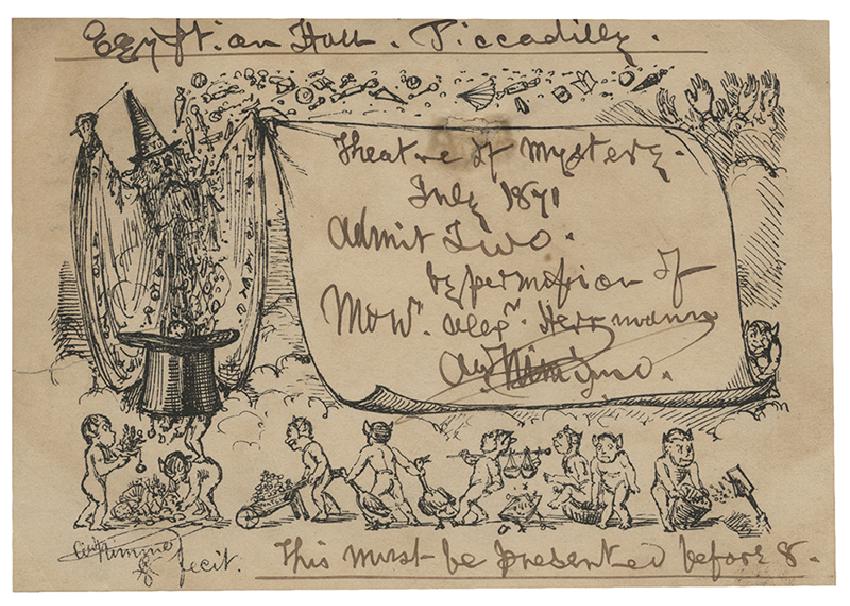 Egyptian Hall. Piccadilly.
Theatre of Mystery.
July 1871
Admit Two.
by permission of
Monr. Alexr. Herrmann
fecit.
This must be presented before 8.